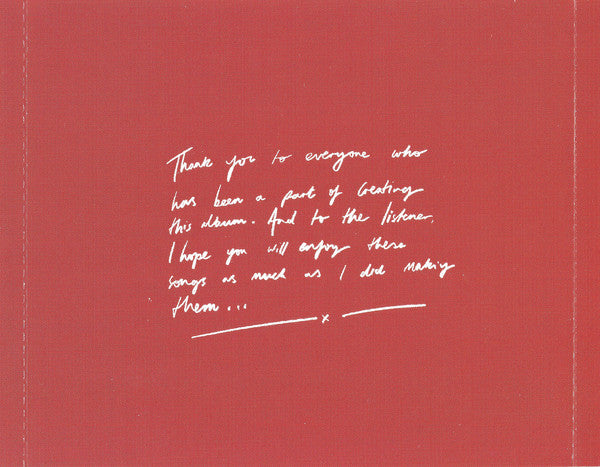 Thank you to everyone who
has been a part of creating
this album. And to the listener,
I hope you will enjoy these
songs as much as I did making
them...
x